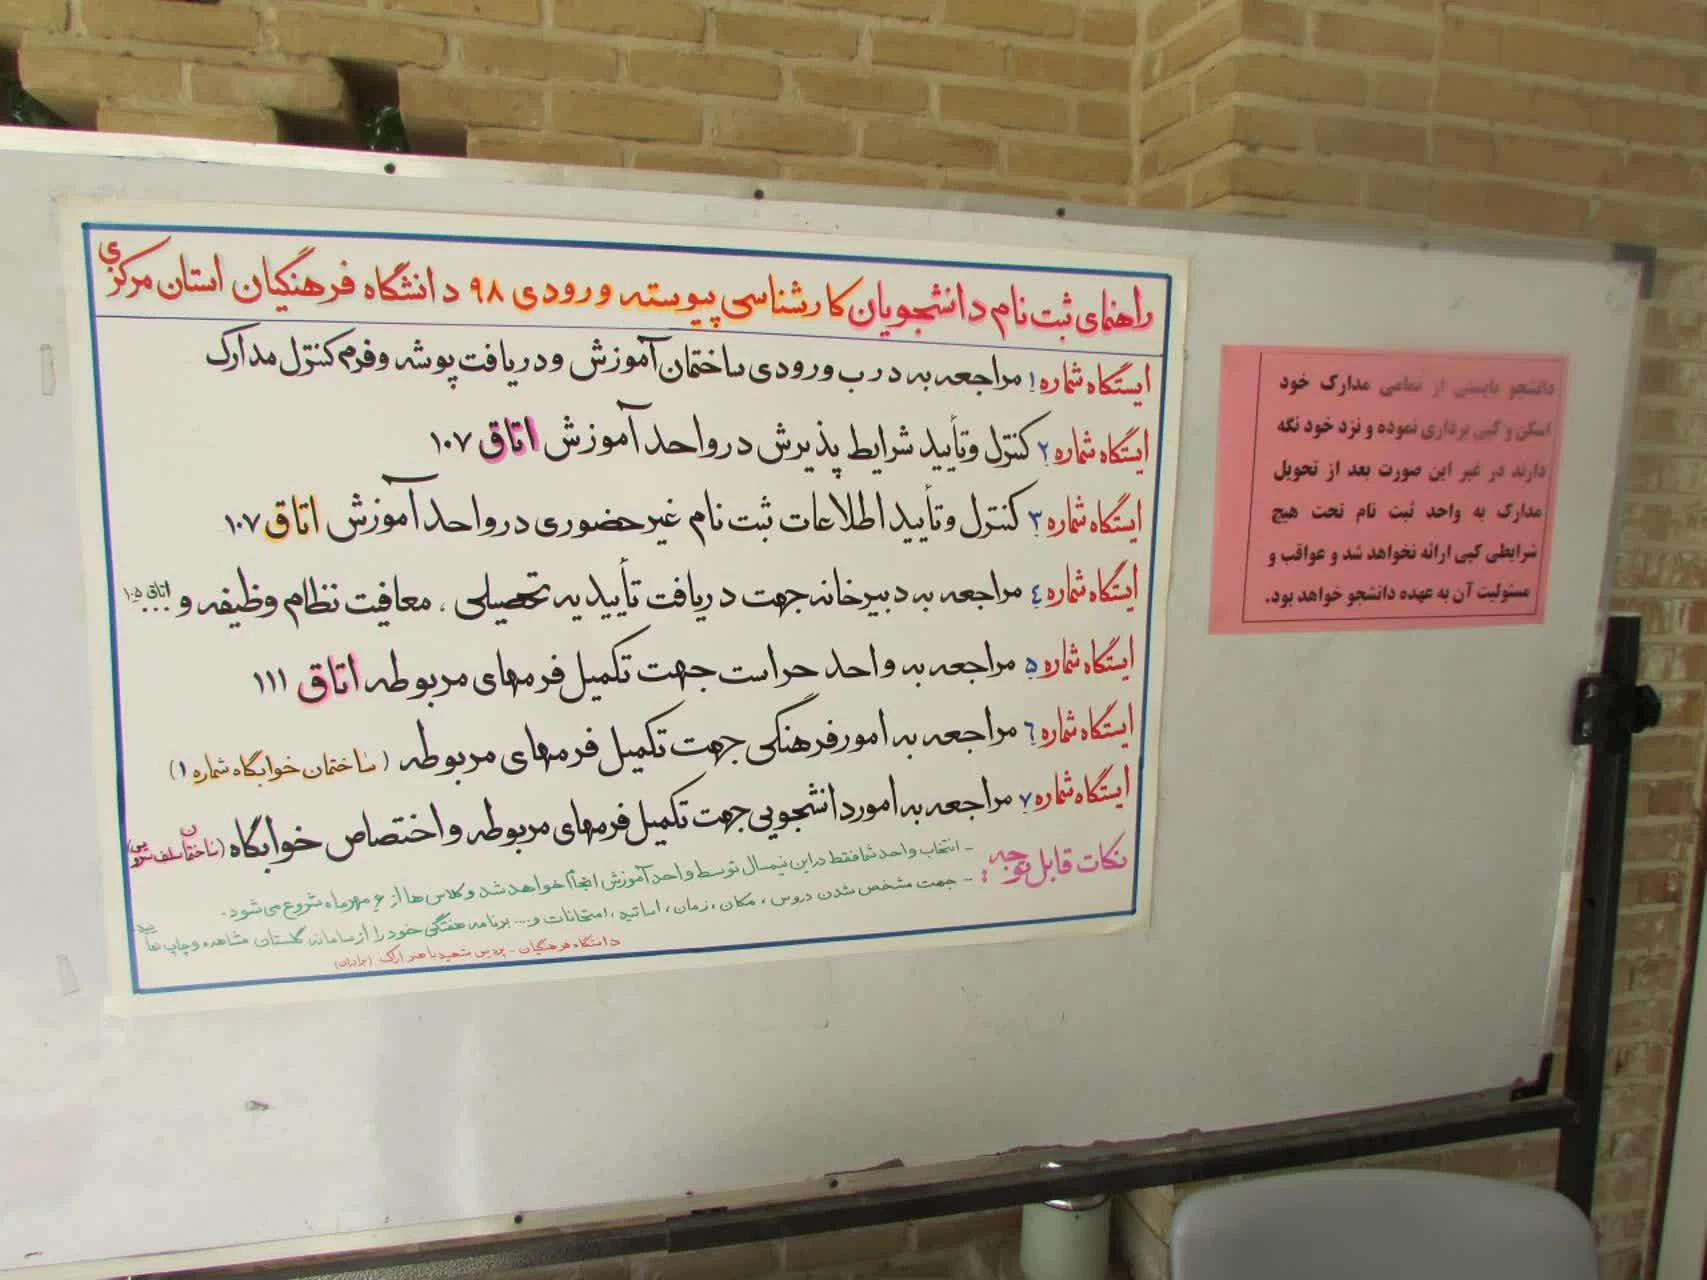 راهنمای ثبت نام دانشجویان کارشناسی پیوسته ورودی ۹۸ دانشگاه فرهنگیان استان مرکزی
ایستگاه شماره ۱ مراجعه به درب ورودی ساختمان آموزش و دریافت پوشه و فرم کنترل مدارک
ایستگاه شماره ۲ کنترل و تأیید شرایط پذیرش در واحد آموزش اتاق ۱۰۷
ایستگاه شماره ۳ کنترل و تأیید اطلاعات ثبت نام غیر حضوری در واحد آموزش اتاق ۱۰۷
ایستگاه شماره ٤ مراجعه به دبیرخانه جهت دریافت تأییدیه تحصیلی ، معافیت نظام وظیفه و ... اتاق ۱۰۵
ایستگاه شماره ۵ مراجعه به واحد حراست جهت تکمیل فرمهای مربوطه اتاق ۱۱۱
ایستگاه شماره ٦ مراجعه به امور فرهنگی جهت تکمیل فرمهای مربوطه (ساختمان خوابگاه شماره ۱)
ایستگاه شماره ۷ مراجعه به امور دانشجویی جهت تکمیل فرمهای مربوطه و اختصاص خوابگاه (ساختمان سلف سرویس)
نکات قابل توجه :
- انتخاب واحد شما فقط در این نیمسال توسط واحد آموزش انجام خواهد شد و کلاس ها از ۶ مهرماه شروع می شود.
- جهت مشخص شدن دروس ، مکان ، زمان ، اساتید ، امتحانات و .... برنامه هفتگی خود را از سامانه گلستان مشاهده و چاپ نمایید
دانشگاه فرهنگیان - پردیس شهید باهنر اراک (برادران)
دانشجو بایستی از تمامی مدارک خود
اسکن و کپی برداری نموده و نزد خود نگه
دارند در غیر این صورت بعد از تحویل
مدارک به واحد ثبت نام تحت هیچ
شرایطی کپی ارائه نخواهد شد و عواقب و
مسئولیت آن به عهده دانشجو خواهد بود.